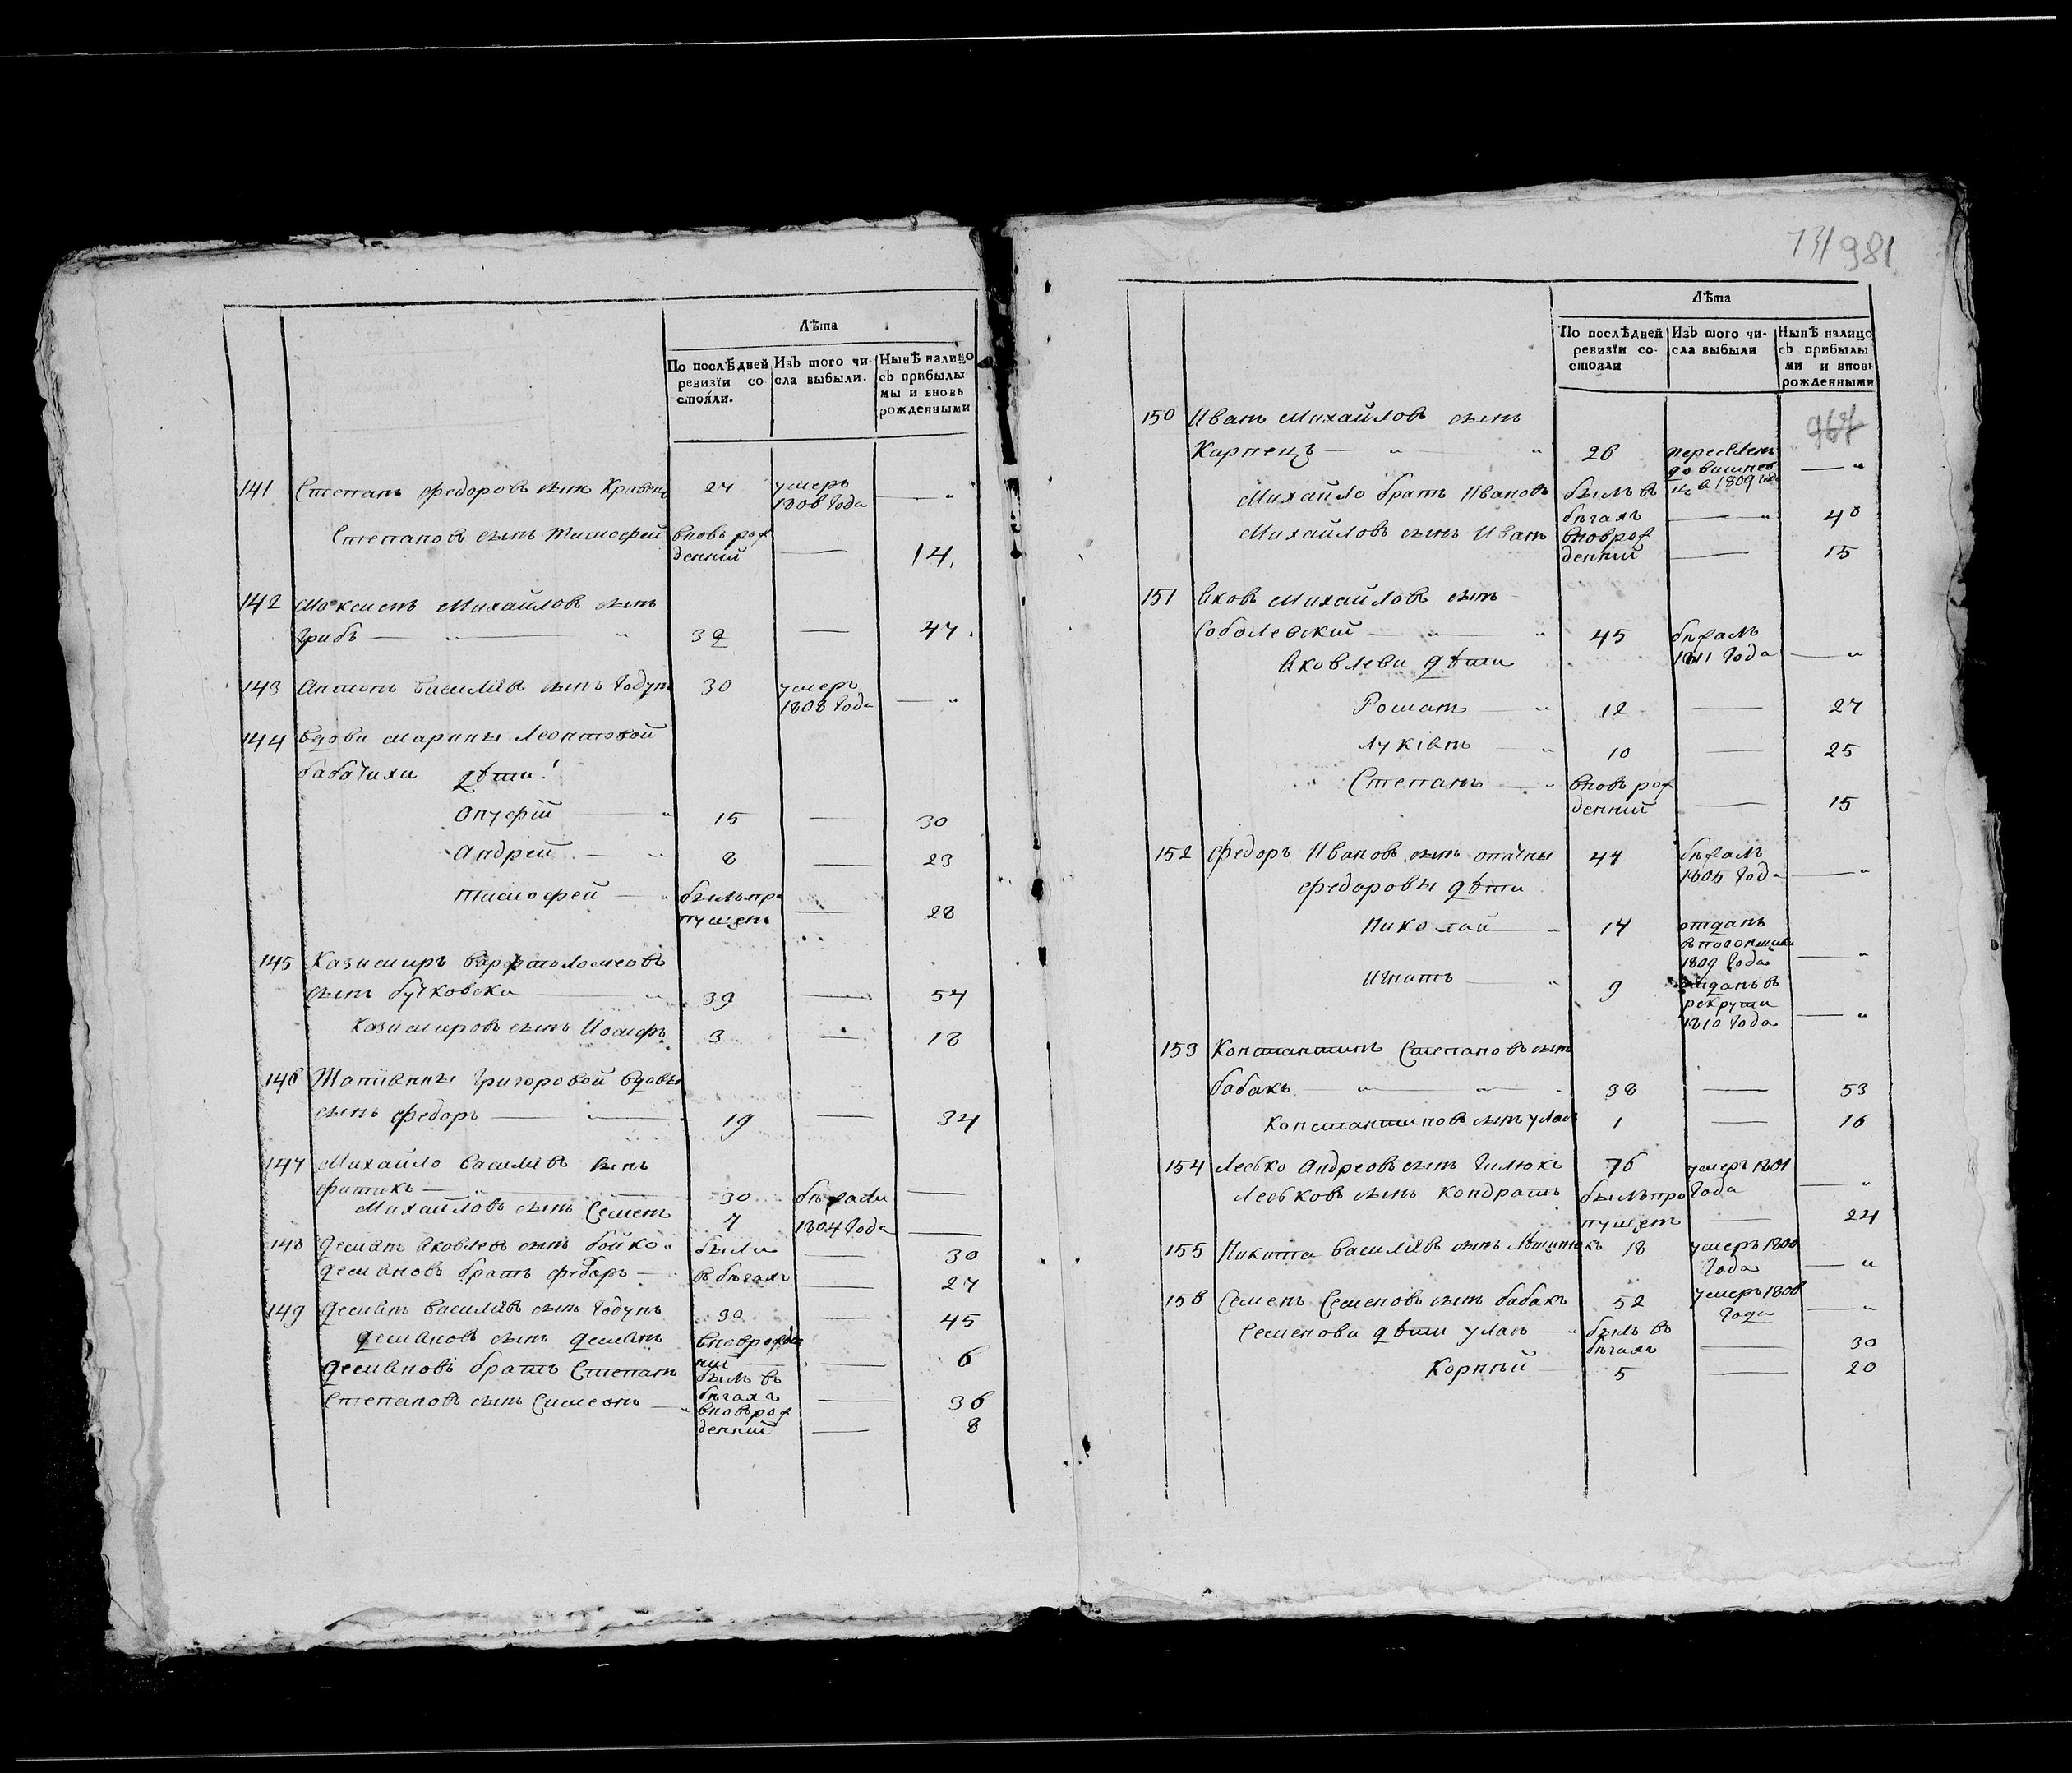 Лѣта
По послѣдней ревизїи состояли.
Изъ того числа выбыли.
Нынѣ налицо съ прибылымы и вновь рожденными
141 Степанъ Федоровъ сынъ Кравец 27 умеръ 1808 Года — "
Степановъ сынъ Тимофей вновь рож денний — 14.
142 Максимъ Михайловъ сынъ
Грибъ — " — " 32 — 47.
143 Антонъ Василѣв сынъ Годунъ 30 умеръ 1808 Года — "
144 Вдови Марины Леонтовой
Бабачихи дѣти!
Онуфрій — " 15 — 30
Андрей — " 8 — 23
Тимофей — " былъ про пущенъ — 28
145 Казимиръ Варфтоломеовъ
сынъ Бучковски — " 39 — 54
Казимировъ сынъ Иосифъ 3 — 18
146 Татіанны Григоровой вдовы
сынъ Федоръ — " — 19 — 34
147 Михайло Василѣв сынъ
Фитикъ — " — 30 бѣжали —
Михайловъ сынъ Семенъ 7 1804 Года —
148 Демянъ Яковлевъ сынъ Бойко " были — 30
Демяновъ братъ Федоръ — в бѣгахъ — 27
149 Демянъ Василѣв сынъ Годунъ 30 — 45
Демяновъ сынъ Демянъ вноврожден ний — 6
Демяновъ братъ Степанъ былъ въ бѣгахъ — 36
Степановъ сынъ Симеонъ — " вновьрож денний — 8
731 981
Лѣта
По послѣдней ревизїи состояли
Изъ того числа выбыли
Нынѣ налицо съ прибылыми и вновь рожденными
967
150 Иванъ Михайловъ сынъ
Карпецъ — " — " 26 переселенъ до 1809 года — "
Михайло братъ Ивановъ былъ в бѣгахъ — " 40
Михайловъ сынъ Иванъ вноврож денний — 15
151 Яковъ Михайловъ сынъ
Соболевский — " — " 45 бѣжалъ 1811 Года — "
Яковлеви дѣти
Романъ — " 12 — 27
Лукіянъ — " 10 — 25
Степанъ — " вновь рож денний — 15
152 Федоръ Ивановъ сынъ 44 бѣжалъ Года — "
Федоровы дѣти
Николай — " 14 отданъ 1809 Года — "
Игнатъ — " 9 отданъ в рекрути 1810 Года — "
153 Константинъ Степановъ сынъ
Бабакъ — " — " — 38 — 53
Константиновъ сынъ Уласъ 1 — 16
154 Леско Андреовъ сынъ Гилюкъ 76 умеръ 1801 Года — "
Лесковъ сынъ Кондратъ былъ про пущенъ — 24
155 Никита Василѣвъ сынъ 18 умеръ 1800 Года — "
156 Семенъ Семеновъ сынъ Бабакъ 52 умеръ 1808 Года — "
Семенови дѣти Улас — " былъ въ бѣгахъ — 30
Корнѣй — 5 — 20